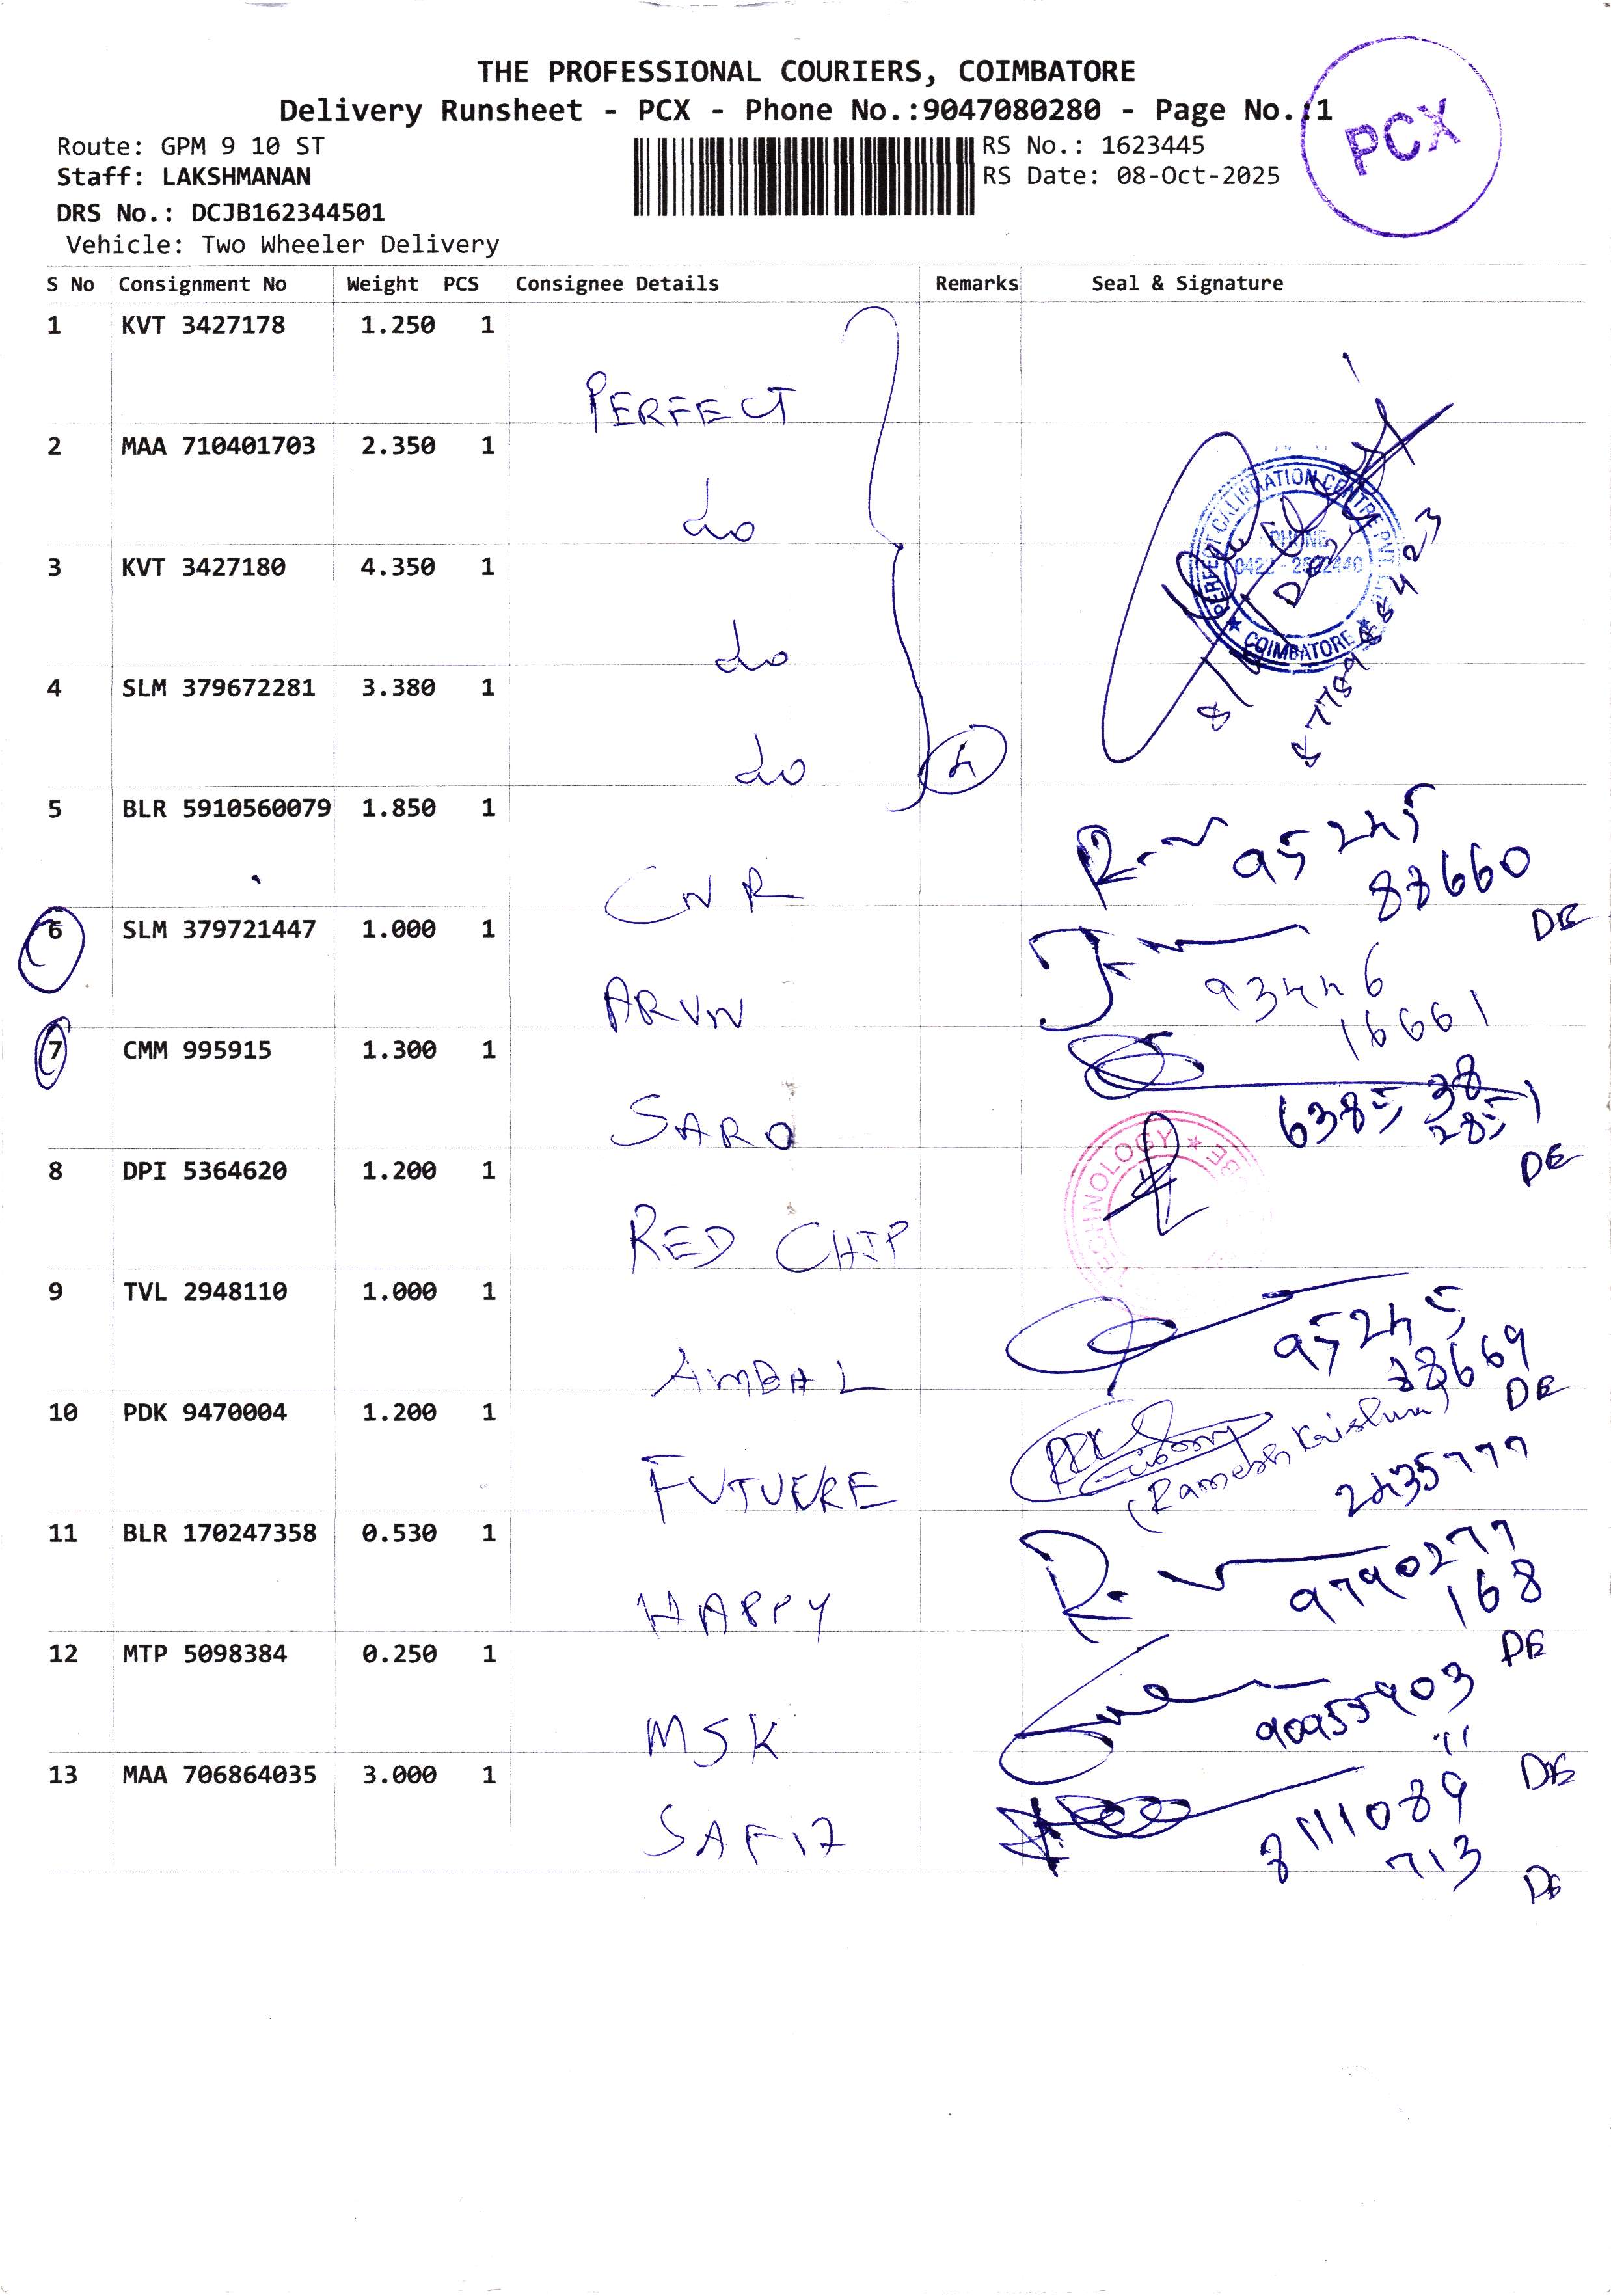 THE PROFESSIONAL COURIERS, COIMBATORE
Delivery Runsheet - PCX - Phone No.:9047080280 - Page No.:1
PCX
Route: GPM 9 10 ST
RS No.: 1623445
Staff: LAKSHMANAN
RS Date: 08-Oct-2025
DRS No.: DCJB162344501
Vehicle: Two Wheeler Delivery
S No Consignment No Weight PCS Consignee Details Remarks Seal & Signature
1 KVT 3427178 1.250 1
PERFECT
2 MAA 710401703 2.350 1
do
3 KVT 3427180 4.350 1
do
4 SLM 379672281 3.380 1
do
PERFECT CALIBRATION CENTRE PVT
PHONE
COIMBATORE
5 BLR 5910560079 1.850 1
CNR
95245
88660
DE
6 SLM 379721447 1.000 1
ARVN
93446
16661
7 CMM 995915 1.300 1
SARO
6385 38
2851
DE
8 DPI 5364620 1.200 1
RED CHIP
TECHNOLOGY
9 TVL 2948110 1.000 1
AMBAL
95245
38669
DE
10 PDK 9470004 1.200 1
FUTUERE
(Ramesh Krishna)
2435777
11 BLR 170247358 0.530 1
HAPPY
9790277
168
DE
12 MTP 5098384 0.250 1
MSK
90955903
11
DE
13 MAA 706864035 3.000 1
SAFIZ
8111089
713
DE